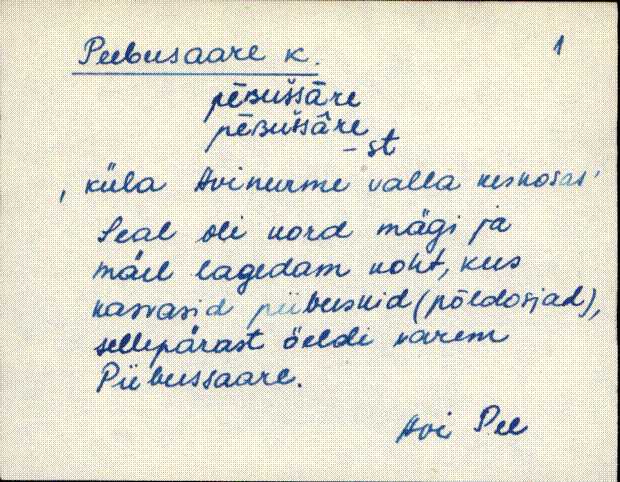 Peebusaare k. 1
pēʙušsāre
pēʙušsâre
-st
, küla Avinurme valla keskosas'
Seal oli kord mägi ja
mäel lagedam koht, kus
kasvasid piibuskid (põldosjad),
sellepärast öeldi varem
Piibussaare.
Avi Pee